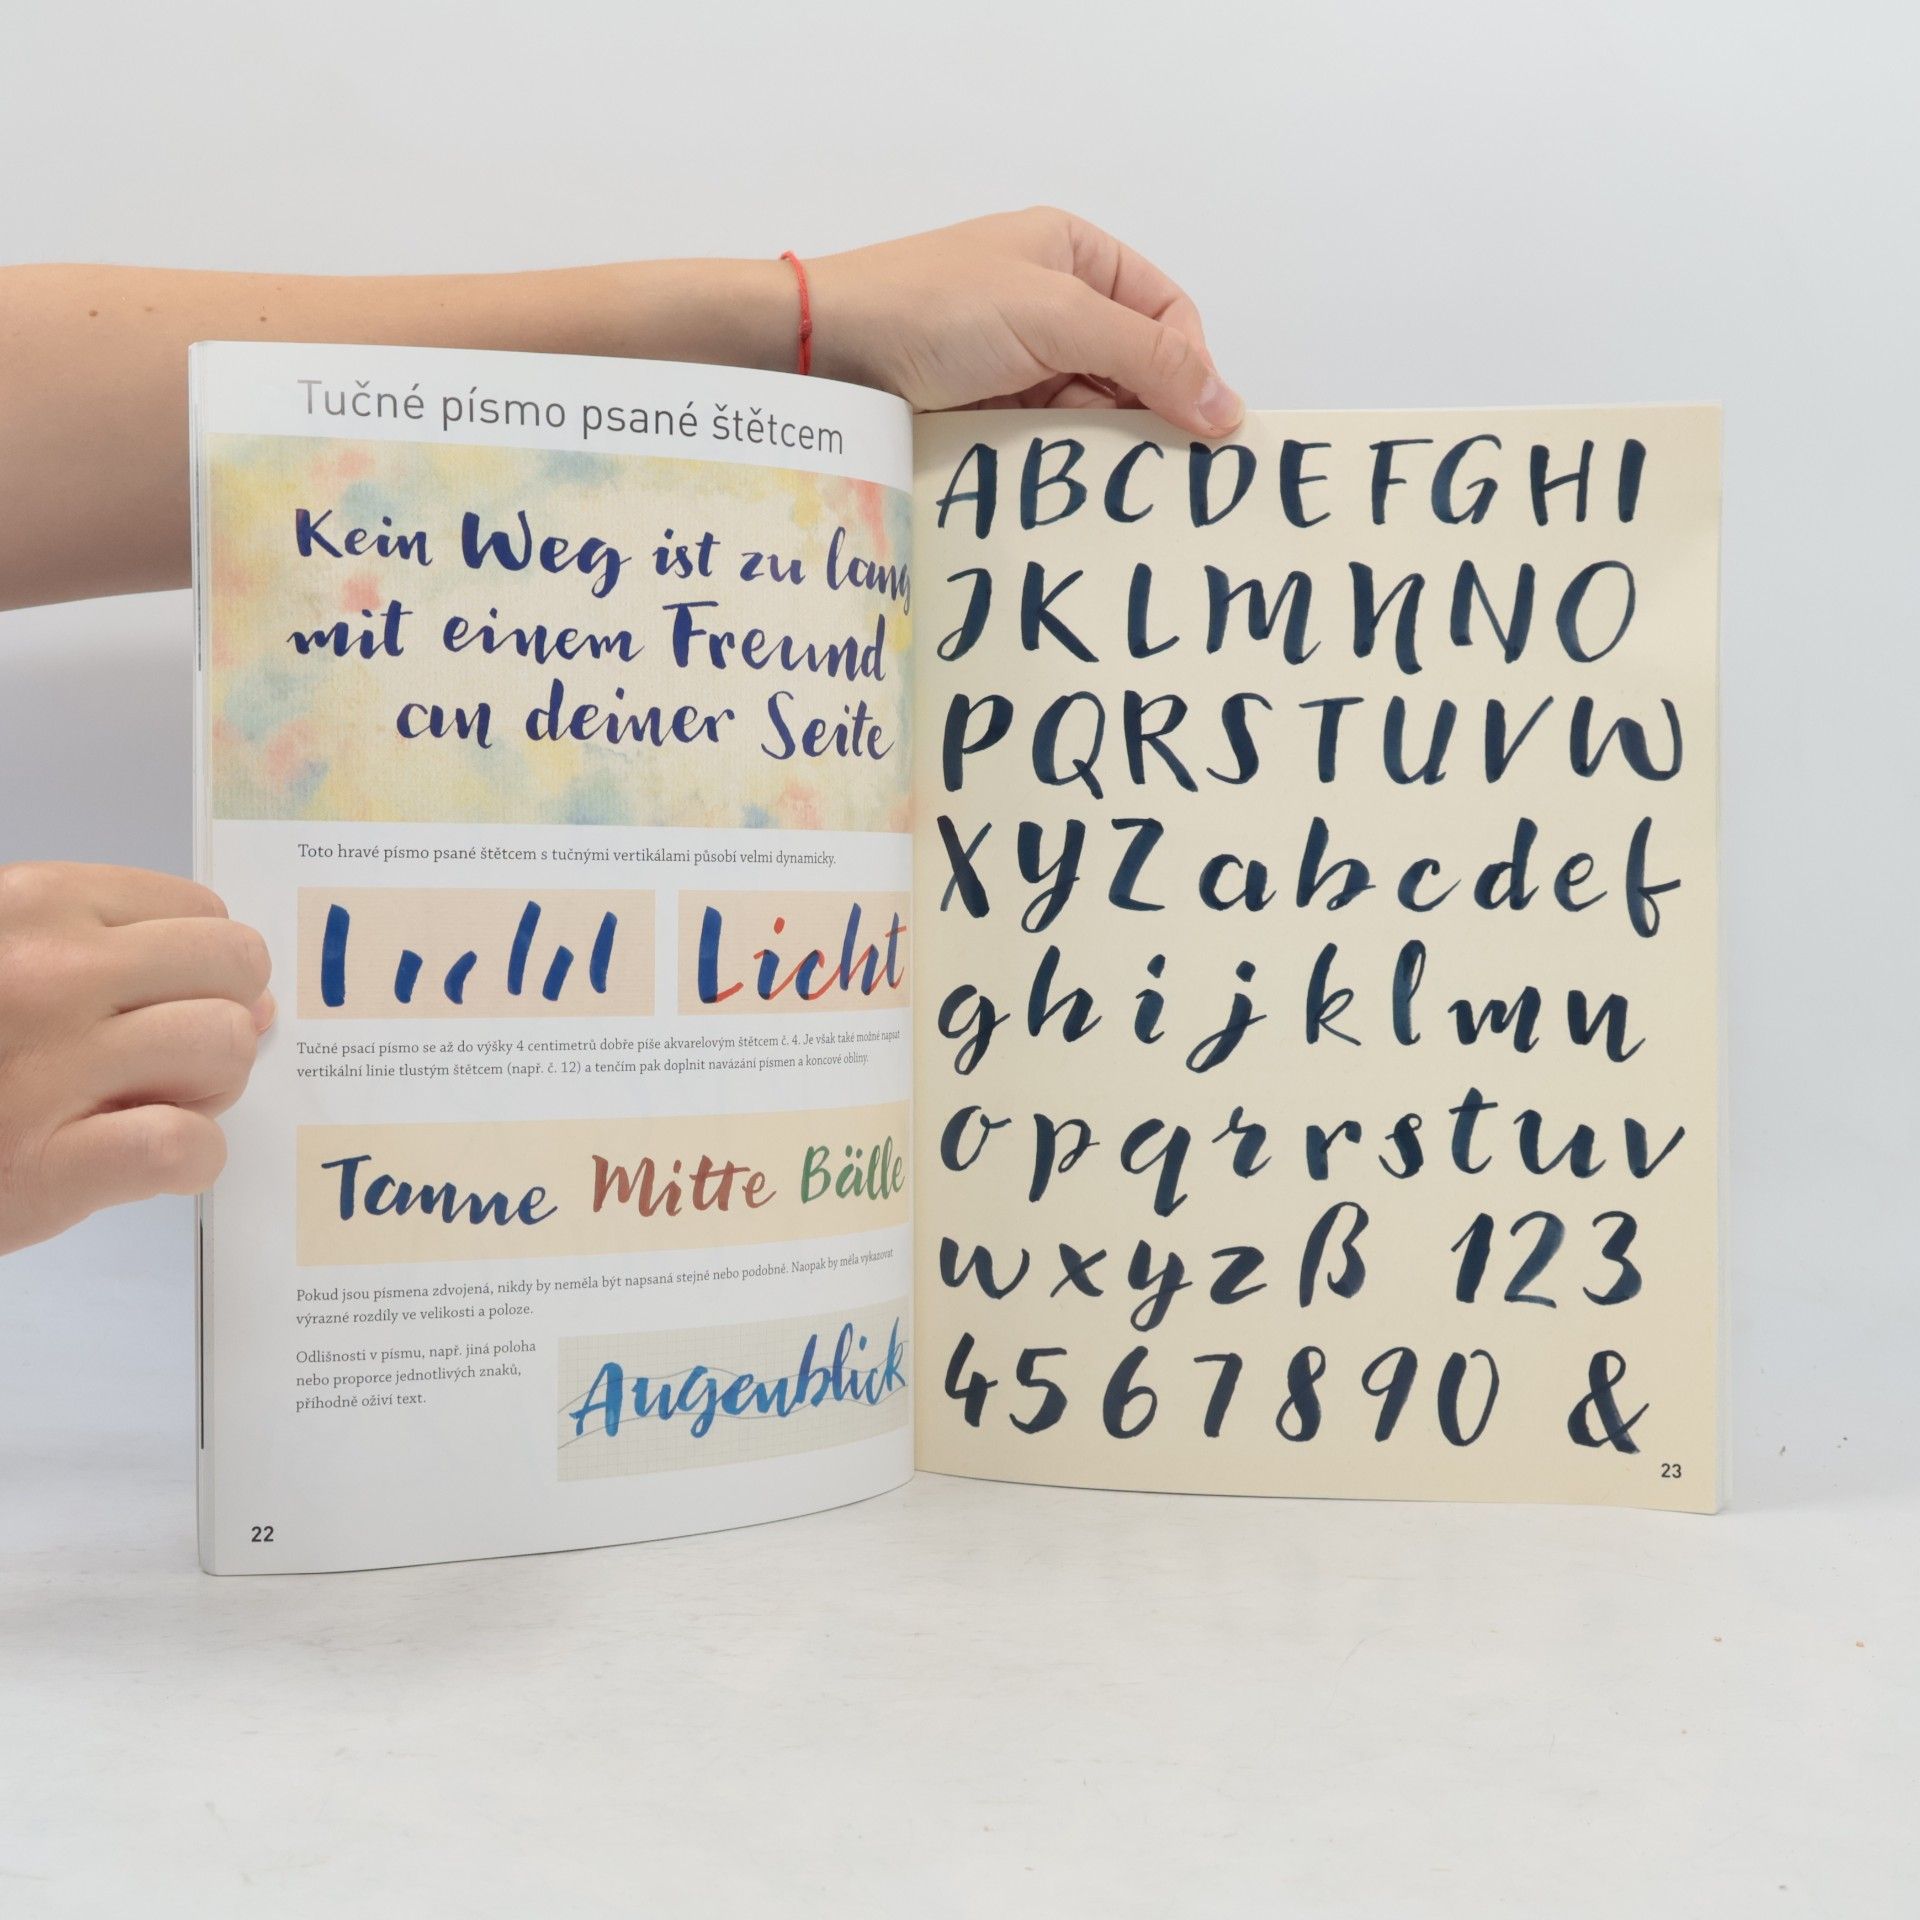 Tučné písmo psané štětcem
Kein Weg ist zu lang
mit einem Freund
an deiner Seite
Toto hravé písmo psané štětcem s tučnými vertikálami působí velmi dynamicky.
Licht
Tučné psací písmo se až do výšky 4 centimetrů dobře píše akvarelovým štětcem č. 4. Je však také možné napsat
vertikální linie tlustým štětcem (např. č. 12) a tenčím pak doplnit navázání písmen a koncové obliny.
Tanne Mitte Bälle
Pokud jsou písmena zdvojená, nikdy by neměla být napsaná stejně nebo podobně. Naopak by měla vykazovat
výrazné rozdíly ve velikosti a poloze.
Odlišnosti v písmu, např. jiná poloha
nebo proporce jednotlivých znaků,
příhodně oživí text.
Augenblick
22
A B C D E F G H I
J K L M N N O
P Q R S T U V W
X Y Z a b c d e f
g h i j k l m n
o p q r r s t u v
w x y z ß 1 2 3
4 5 6 7 8 9 0 &
23